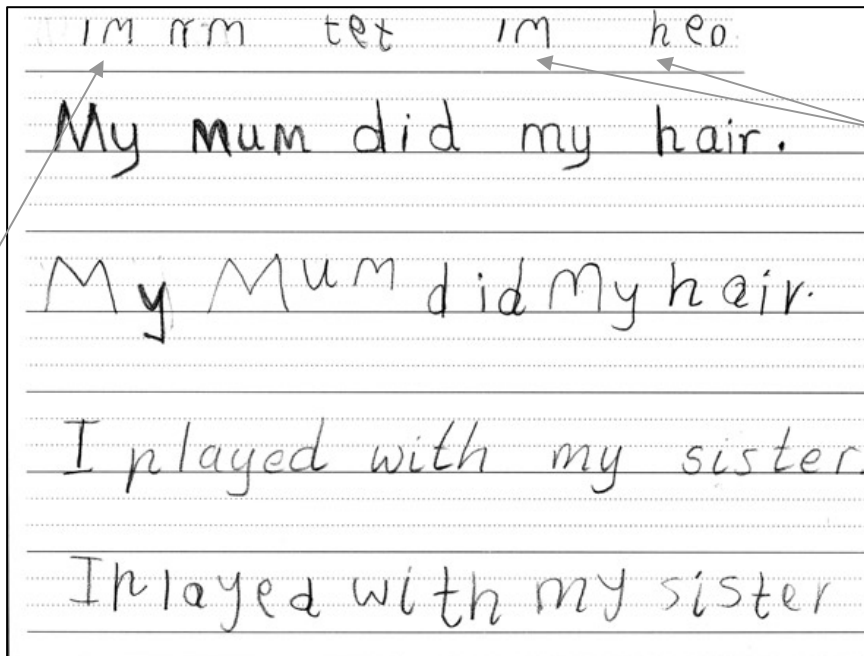 im rrm tet im heo
My mum did my hair.
My Mum did My hair.
I played with my sister.
I played with my sister